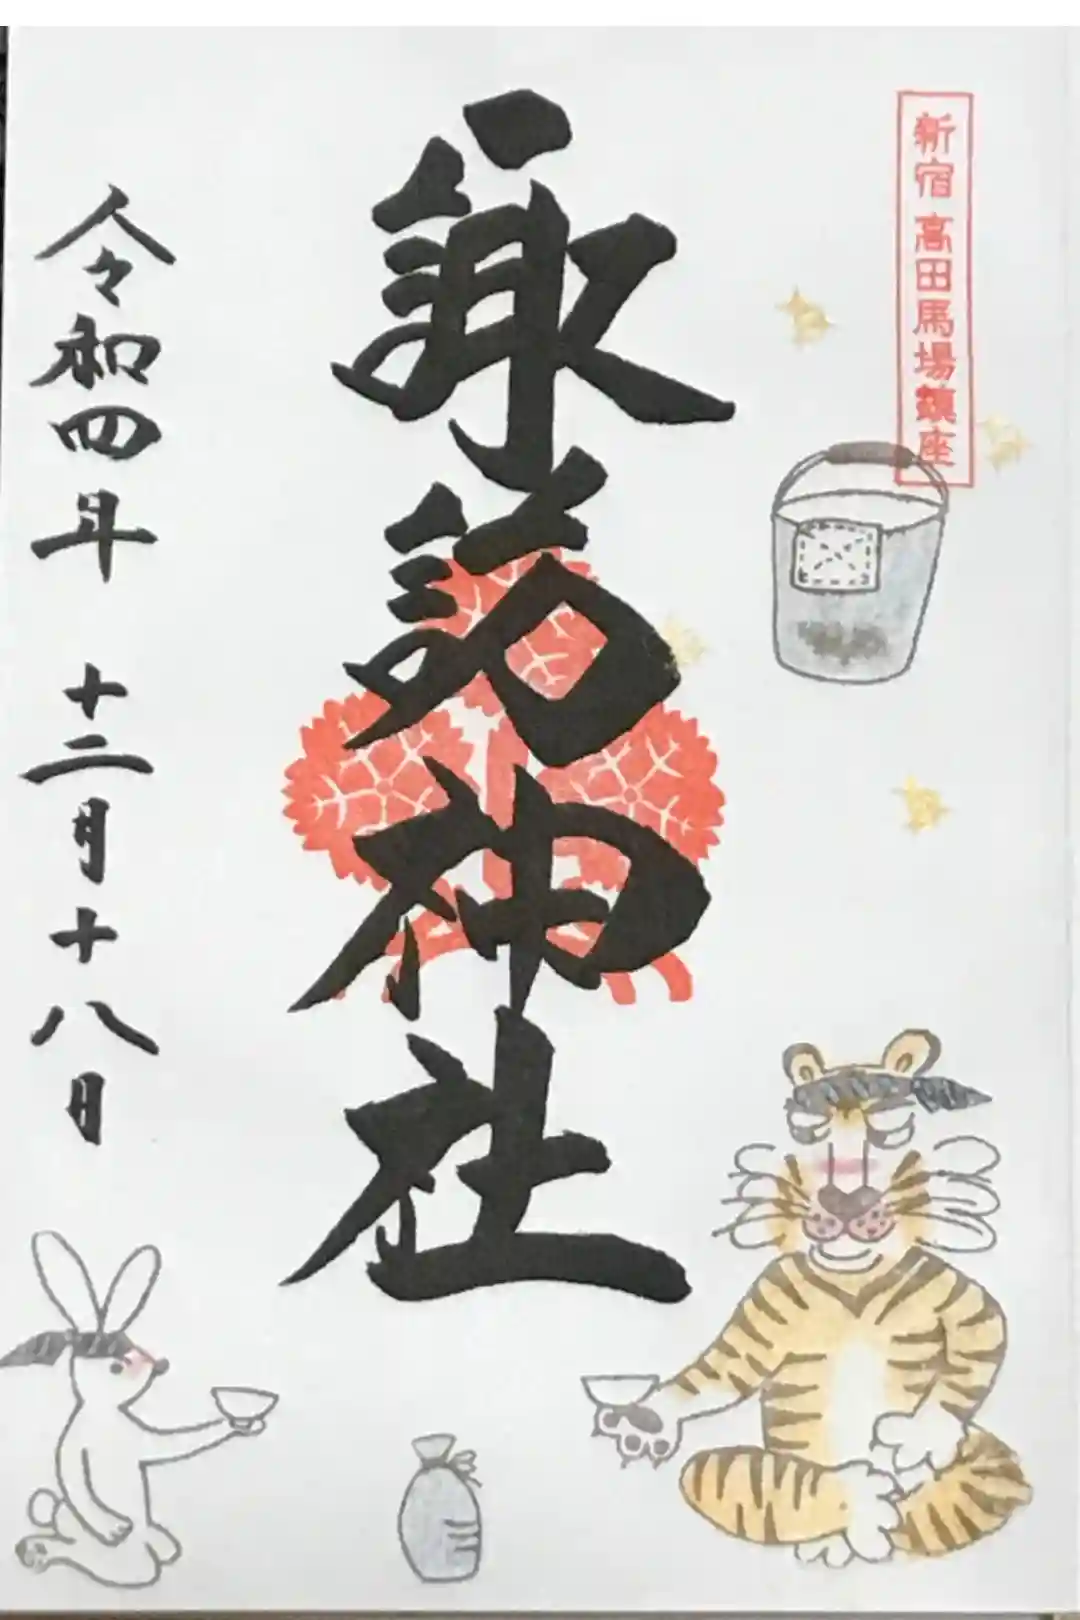 新宿高田馬場鎮座
諏訪神社
令和四年 十二月十八日